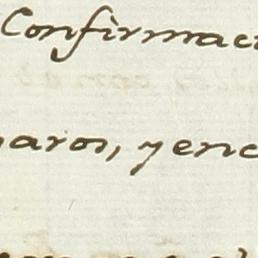 Confirmac
aros, y enc